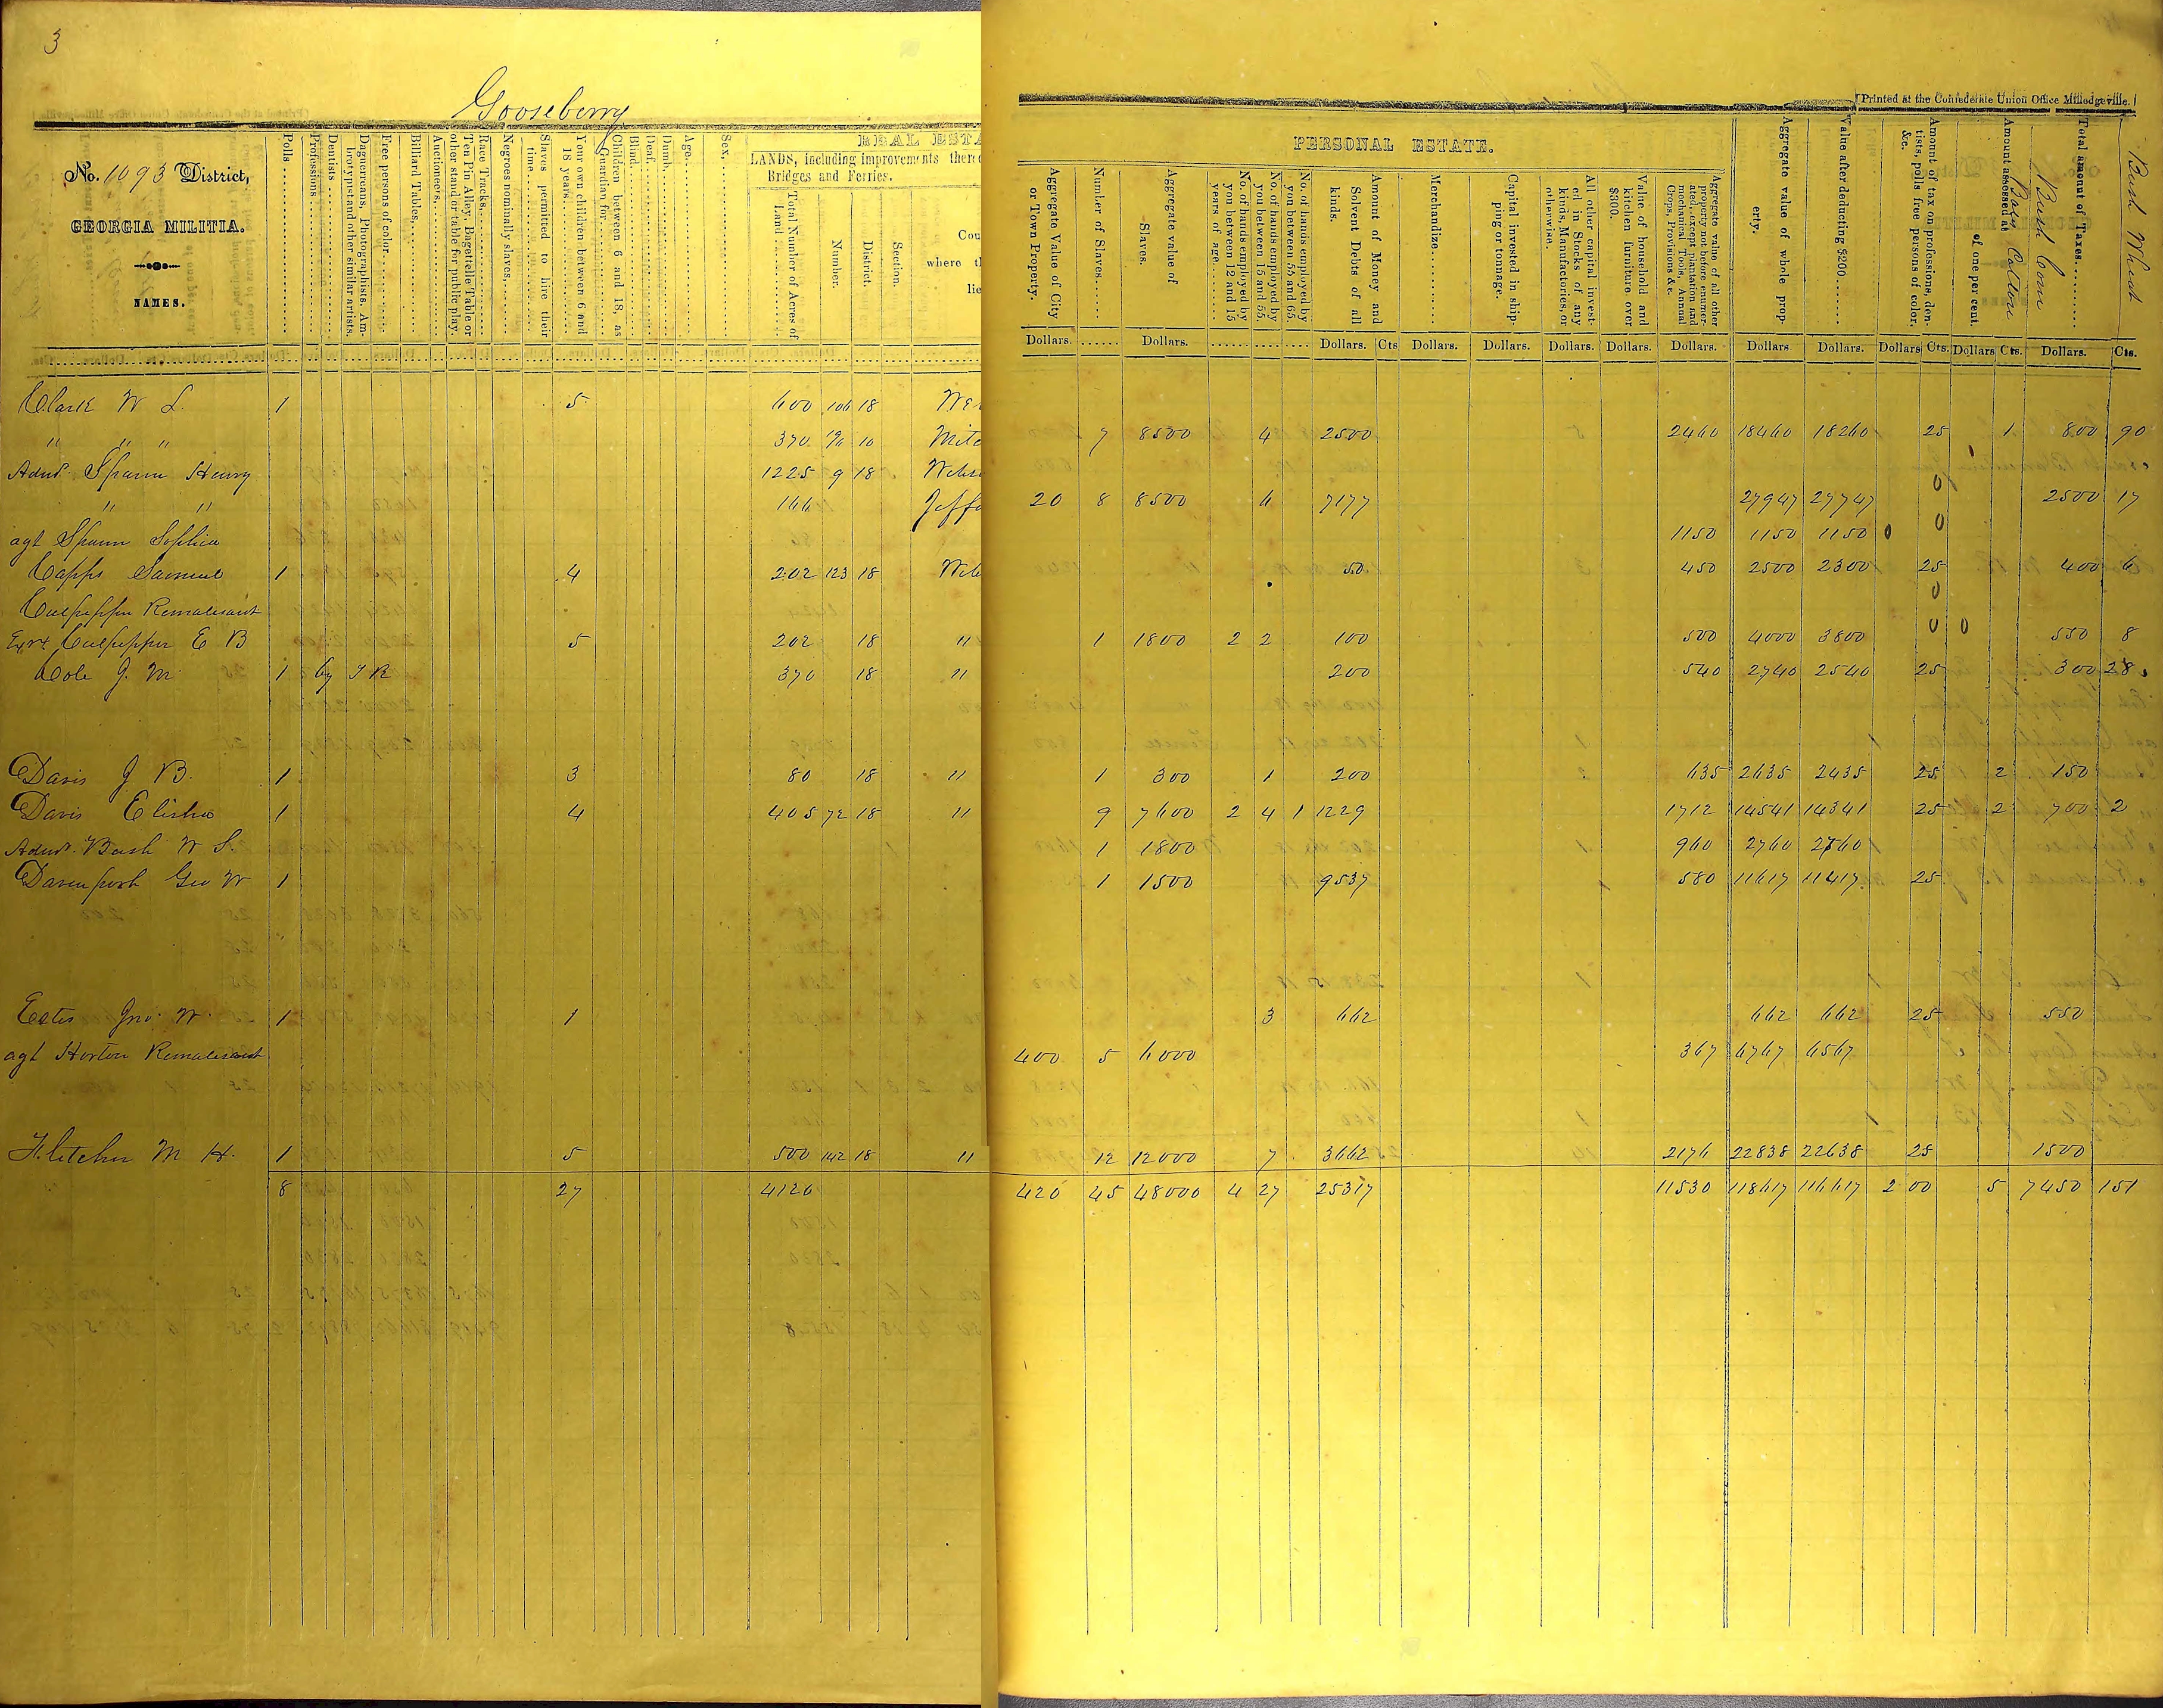 3
Gooseberry
[Printed at the Confederate Union Office Milledgeville.]
No. 1093 District,
GEORGIA MILITIA.
NAMES.
Polls
Professions
Dentists
Daguerreans, Photographists, Ambrotypists and other similar artists.
Free persons of color
Billiard Tables,
Auctioneers,
Ten Pin Alley, Bagettelle Table or other stand or table for public play.
Race Tracks,
Negroes nominally slaves,
Slaves permitted to hire their time
Your own children between 6 and 18 years
Children between 6 and 18, as Guardian for
Blind
Deaf
Dumb
Age
Sex
REAL ESTA
LANDS, including improvements there
Bridges and Ferries.
Total Number of Acres of Land
Number.
District.
Section.
Cou
where t
lie
PERSONAL ESTATE.
Aggregate Value of City or Town Property.
Number of Slaves
Aggregate value of Slaves.
No. of hands employed by you between 12 and 15 years of age
No. of hands employed by you between 15 and 55.
No. of hands employed by you between 55 and 65.
Amount of Money and Solvent Debts of all kinds.
Merchandize
Capital invested in shipping or tonnage.
All other capital invested in Stocks of any kinds, Manufactories, or otherwise.
Value of household and kitchen furniture over $300.
Aggregate value of all other property not before enumerated, except plantation and mechanical Tools, Annual Crops, Provisions &c.
Aggregate value of whole property.
Value after deducting $200
Amount of tax on professions, dentists, polls free persons of color, &c.
Amount assessed at of one per cent.
Bags Cotton
Total amount of Taxes
Bush Corn
Bush Wheat
Dollars. Dollars. Dollars. Cts Dollars. Dollars. Dollars. Dollars. Dollars. Dollars Dollars. Dollars Cts. Dollars Cts. Dollars. Cts.
Clark W L. 1 5 600 106 18 We
" " " 370 10 Mitc 7 8500 4 2500 2460 18460 18260 25 1 800 90
Admr. Spann Henry 1225 9 18 Webs
" " 166 Jeffe 20 8 8500 6 7177 27947 27747 0 2500 17
agt Spann Sophia 1150 1150 1150 0 0
Capps Samuel 1 4 202 123 18 Web 50 450 2500 2300 25 400 6
Culpepper 0
Exrx Culpepper E B 5 202 18 " 1 1800 2 2 100 500 4000 3800 0 0 550 8
Cole J. M 1 by J R 370 18 " 200 540 2740 2540 25 300 28
Davis J B. 1 3 80 18 " 1 300 1 200 635 2635 2435 25 2 150
Davis Elisha 1 4 405 72 18 " 9 7600 2 4 1 1229 1712 14541 14341 25 2 700 2
Admr. Bush W S. 1 1800 960 2760 2560
Davenport Geo W 1 1 1500 9537 580 11617 11417 25
Estes Jno. W. 1 1 3 662 662 662 25 550
agt Horton 400 5 6000 367 6767 6567
Fletcher M H. 1 5 500 142 18 " 12 12000 7 3662 2176 22838 22638 25 1500
8 27 4120 420 45 48000 4 27 25317 11530 118617 116617 2 00 5 7450 151